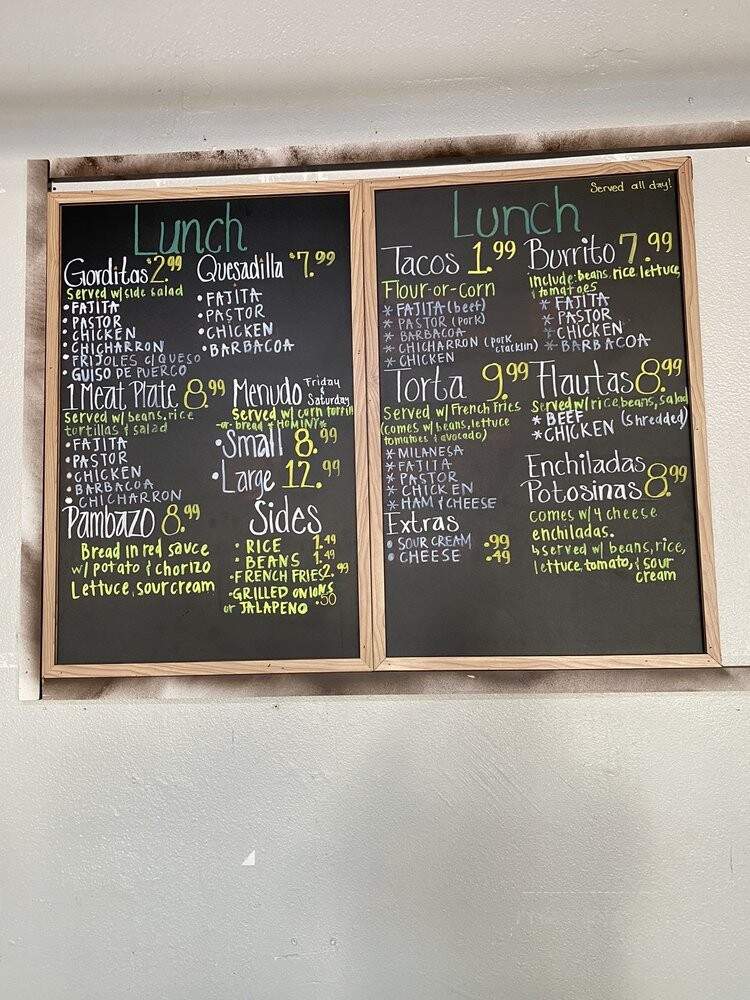 Lunch
Gorditas $2.99
Served w/ side salad
• FAJITA
• PASTOR
• CHICKEN
• CHICHARRON
• FRIJOLES C/QUESO
• GUISO DE PUERCO
Quesadilla $7.99
• FAJITA
• PASTOR
• CHICKEN
• BARBACOA
1 Meat Plate 8.99
Served w/ beans, rice
tortillas & salad
• FAJITA
• PASTOR
• CHICKEN
• BARBACOA
• CHICHARRON
Menudo Friday & Saturday
Served w/ corn tortill
-or- bread * HOMINY*
• Small 8.99
• Large 12.99
Pambazo 8.99
Bread in red sauce
w/ potato & chorizo
Lettuce, sour cream
Sides
• RICE 1.49
• BEANS 1.49
• FRENCH FRIES 2.99
• GRILLED ONIONS
or JALAPENO .50
Lunch
Served all day!
Tacos 1.99
Flour-or-corn
* FAJITA (beef)
* PASTOR (pork)
* BARBACOA
* CHICHARRON (pork cracklin)
* CHICKEN
Burrito 7.99
include: beans, rice, lettuce,
& tomatoes
* FAJITA
* PASTOR
* CHICKEN
* BARBACOA
Torta 9.99
Served w/ French Fries
(comes w/ beans, lettuce
tomatoes & avocado)
* MILANESA
* FAJITA
* PASTOR
* CHICKEN
* HAM & CHEESE
Flautas 8.99
Served w/ rice, beans, salad
* BEEF
* CHICKEN (shredded)
Extras
• SOUR CREAM .99
• CHEESE .49
Enchiladas
Potosinas 8.99
comes w/ 4 cheese
enchiladas.
served w/ beans, rice,
lettuce, tomato, & sour
cream